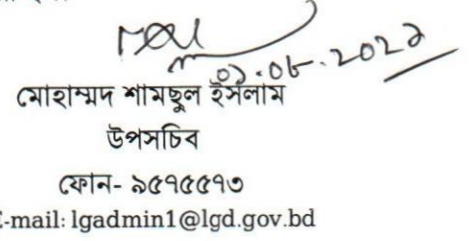 মোহাম্মদ শামছুল ইসলাম
উপসচিব
ফোন- ৯৫৭৫৫৭৩
E-mail: lgadmin1@lgd.gov.bd